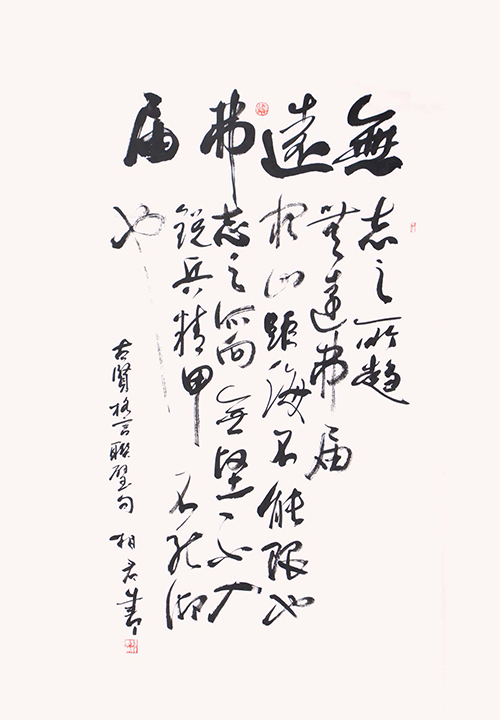 無遠弗届
志之所趨
無遠弗届
窮山距海不能限也
志之所向無堅不入
銳兵精甲不能御
也
古賢格言聯璧句 相君書